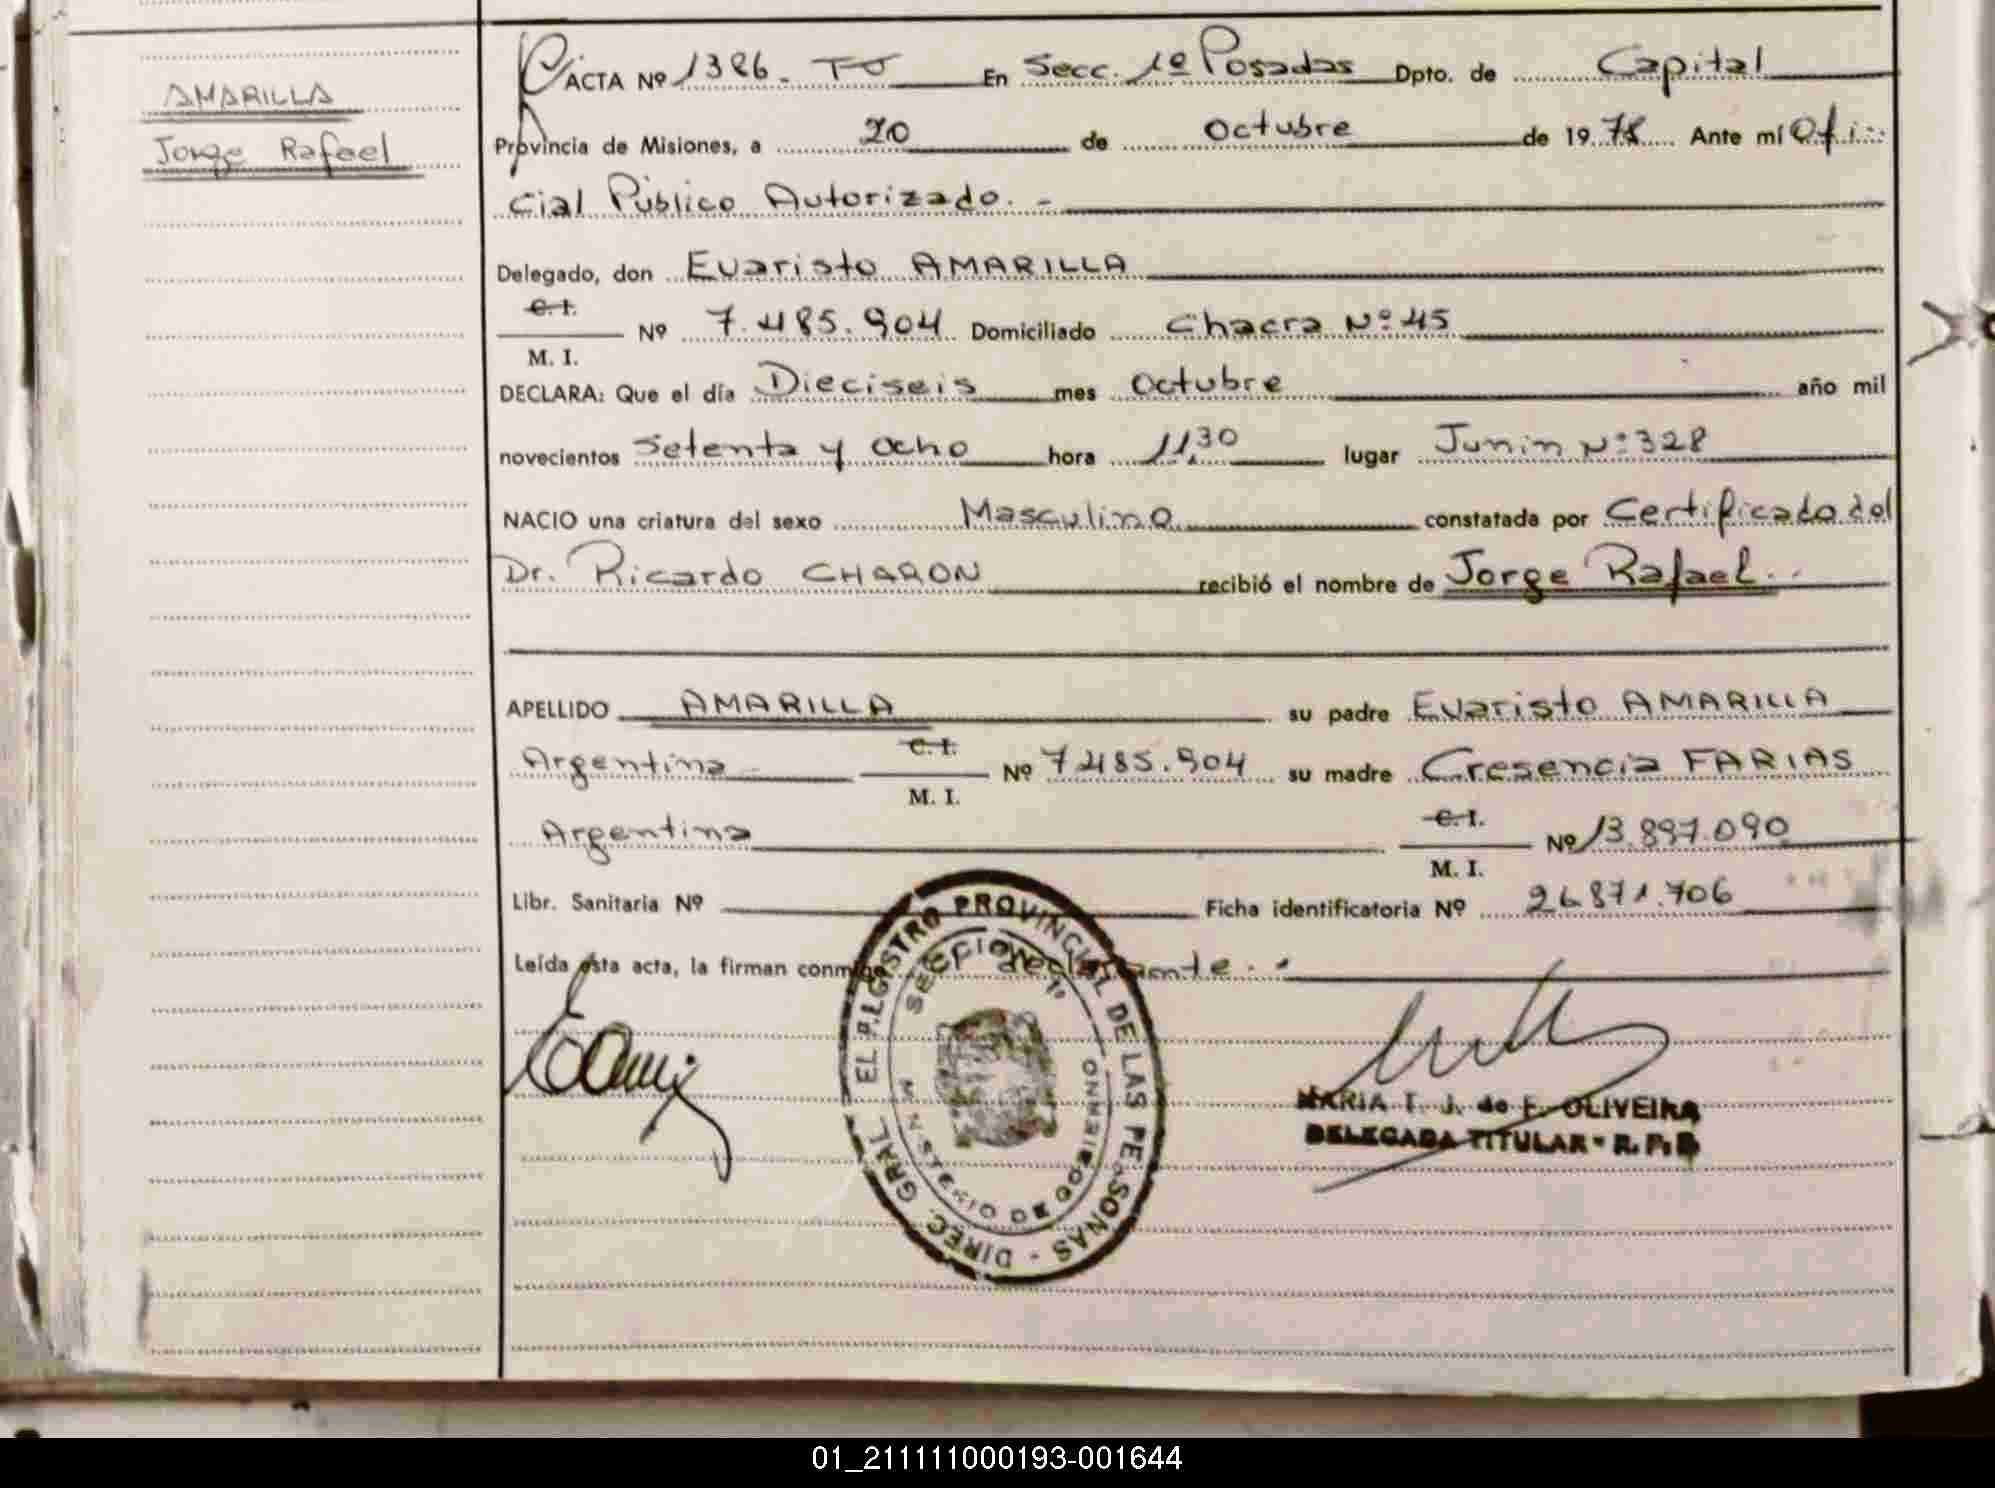 AMARILLA
Jorge Rafael
ACTA Nº 1386. Tº En Secc. 1º Posadas Dpto. de Capital
Provincia de Misiones, a 20 de Octubre de 1978 Ante mí Ofi
cial Público Autorizado. -
Delegado, don Evaristo AMARILLA
C. I.
Nº 7.485.904 Domiciliado Chacra Nº 45
M. I.
DECLARA: Que el día Dieciseis mes Octubre año mil
novecientos Setenta y Ocho hora 11,30 lugar Junin Nº 328
NACIO una criatura del sexo Masculino constatada por Certificado del
Dr. Ricardo CHARON recibió el nombre de Jorge Rafael.
APELLIDO AMARILLA su padre Evaristo AMARILLA
C. I.
Argentina Nº 7.485.904 su madre Cresencia FARIAS
M. I.
C. I.
Argentina Nº 13.897.090
M. I.
Libr. Sanitaria Nº Ficha identificatoria Nº 26.871.706
Leída ésta acta, la firman conmigo declarante. -
DIREC. GRAL. DEL REGISTRO PROVINCIAL DE LAS PERSONAS -
SECCION 1º
MINISTERIO DE GOBIERNO
MARIA T. J. de F. OLIVEIRA
DELEGADA TITULAR - R. P. P.
01_211111000193-001644